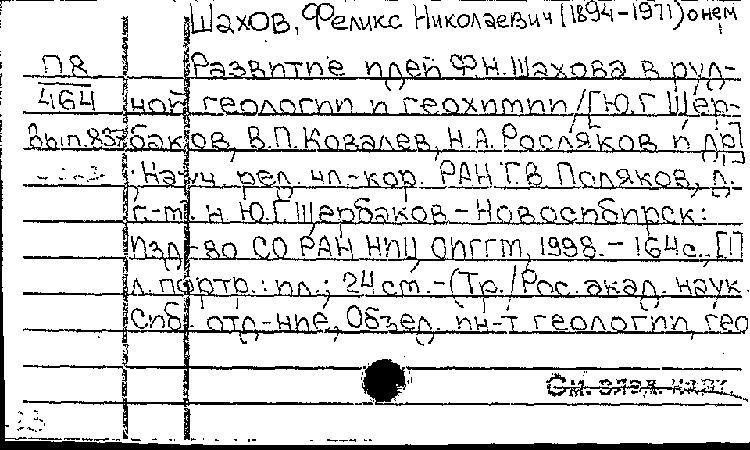 Шахов, Феликс Николаевич (1894-1971) о нем
П8
464
Вып. 837
Развитие идей Ф.Н. Шахова в руд-
ной геологии и геохимии / [Ю.Г. Щер-
баков, В.П. Ковалев, Н.А. Росляков и др.]
; Науч. ред. чл.-кор. РАН Г.В. Поляков, д.
г.-м. н. Ю.Г. Щербаков - Новосибирск:
Изд-во СО РАН НИЦ ОИГГМ, 1998. - 164 с., [1]
л. портр.: ил.; 24 см. - (Тр. / Рос. акад. наук.
Сиб. отд-ние, Объед. ин-т геологии, гео
См. след. карт.